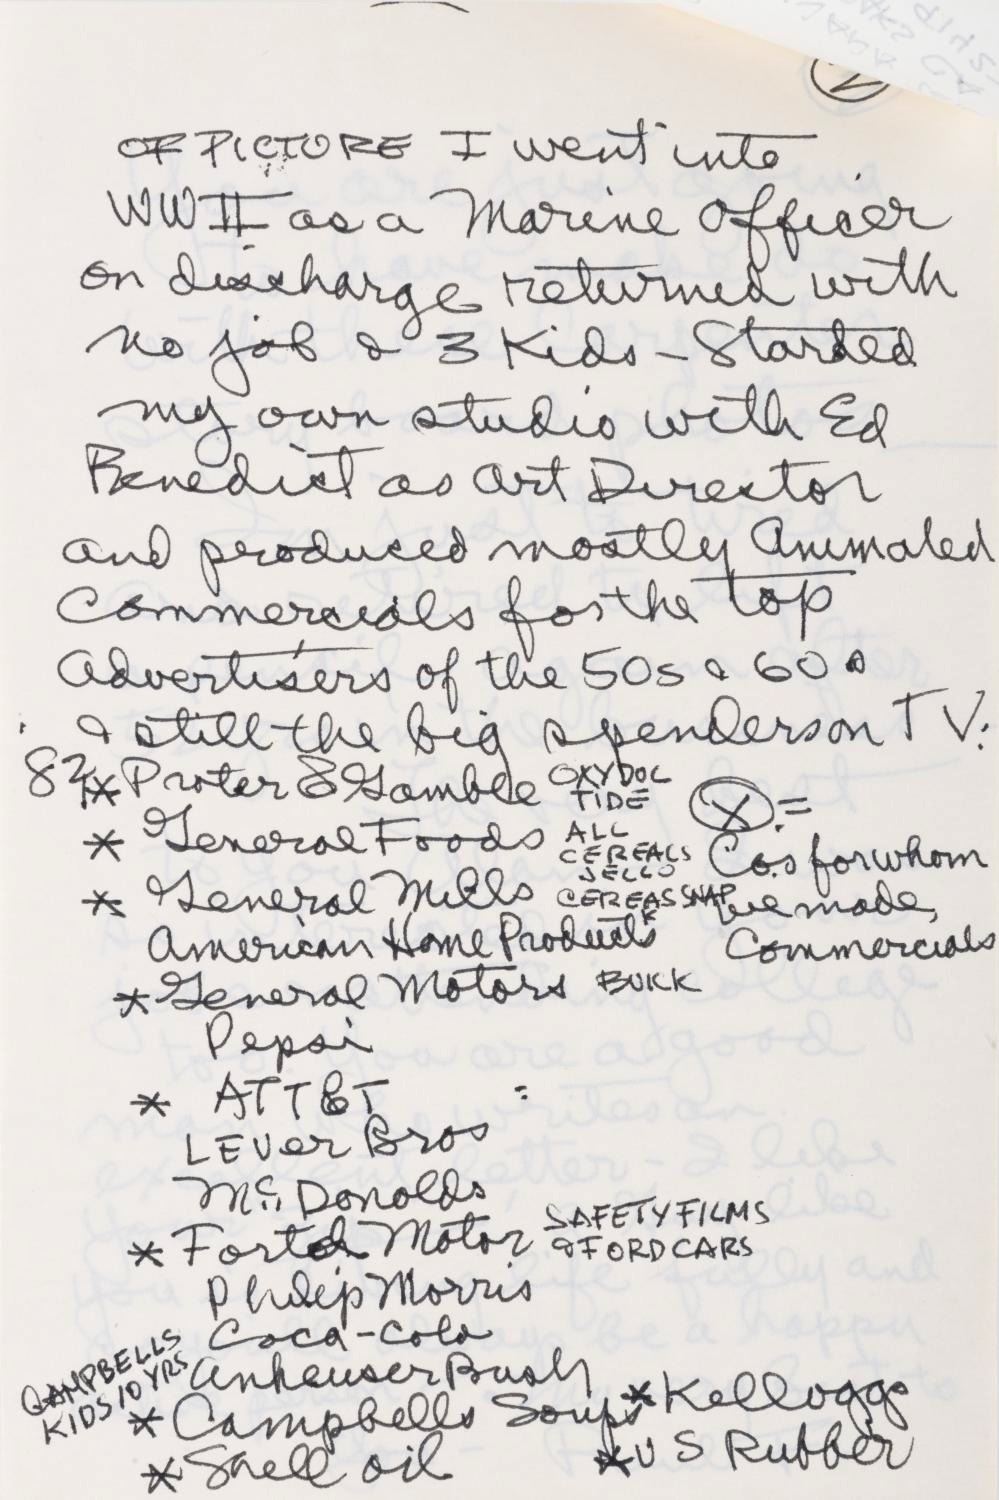 2
OF PICTURE I went into
WWII as a Marine Officer
on discharge returned with
no job & 3 Kids - Started
my own studio with Ed
Benedict as Art Director
and produced mostly Animated
Commercials for the top
Advertisers of the 50s & 60s
& still the big spenders on TV:
82
* Procter & Gamble OXYDOL TIDE
* General Foods ALL CEREALS JELLO
* General Mills CEREAS SNAP
American Home Products
* General Motors BUICK
Pepsi
* ATT&T
LEVER Bros
McDonalds
* Ford Motor SAFETY FILMS & FORD CARS
Philip Morris
Coca-Cola
Anheuser Bush
* Campbells Soups
CAMPBELLS KIDS 10 YRS
* Shell oil
* Kelloggs
* U S Rubber
(X) =
Co.s for whom
we made
Commercials